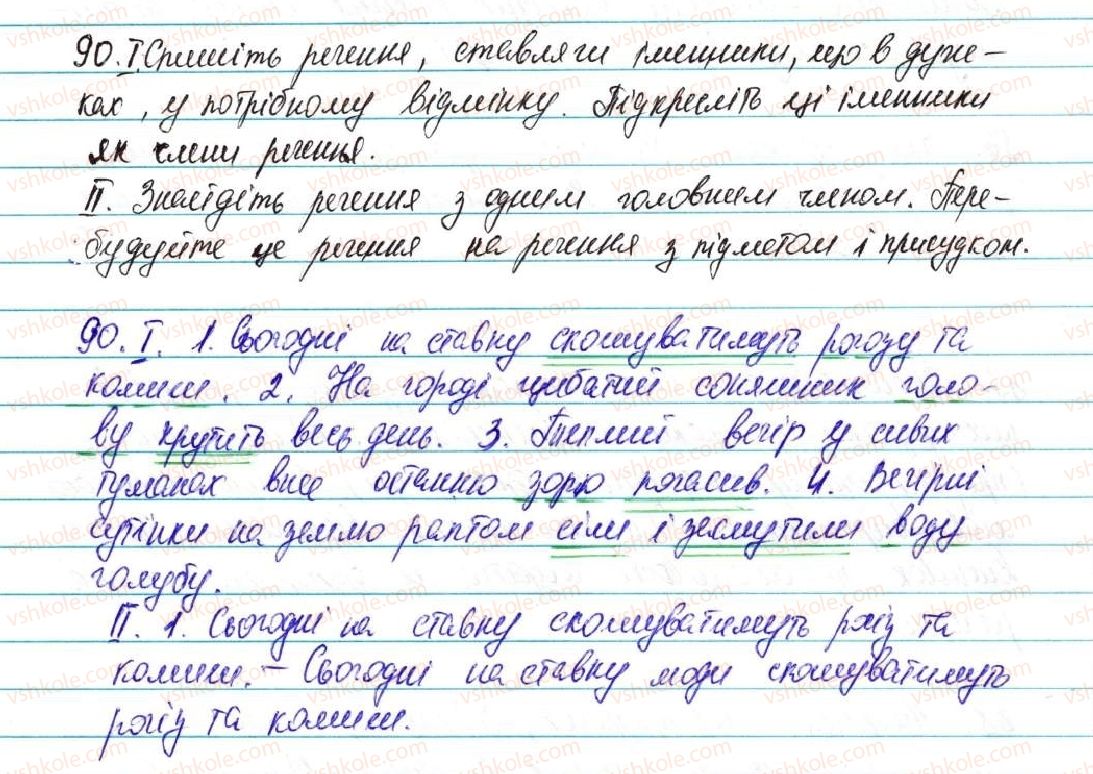 90. I Спишіть речення, ставлячи іменники, що в дуж-
ках, у потрібному відмінку. Підкресліть ці іменники
як члени речення.
II. Знайдіть речення з одним головним членом. Пере-
будуйте це речення на речення з підметом і присудком.
90. I. 1. Сьогодні на ставку скошуватимуть рогозу та
комиш. 2. На городі цибатий соняшник голо-
ву крутить весь день. 3. Теплий вечір у сивих
туманах вже останню зорю погасив. 4. Вечірні
сутінки на землю раптом сіли і засмутили воду
голубу.
II. 1. Сьогодні на ставку скошуватимуть рогіз та
комиш. – Сьогодні на ставку люди скошуватимуть
рогіз та комиш.